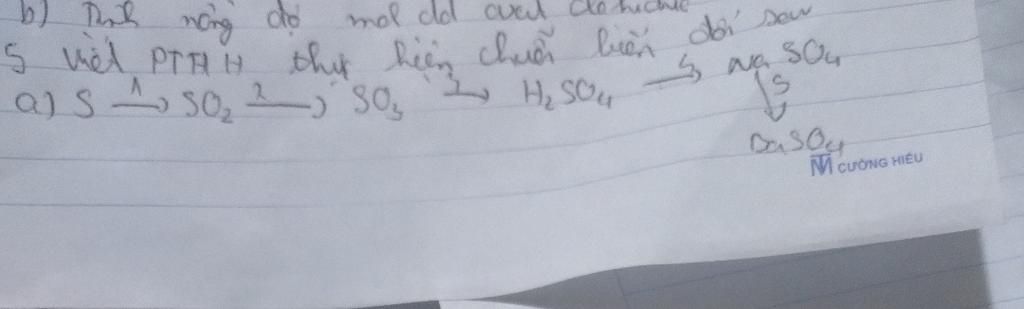 b) Tính nồng độ mol dd axit
5 Viết PTHH thực hiện chuỗi biến đổi sau
a) S 1→ SO2 2→ SO3 3→ H2SO4 4→ Na SO4
↓ 5
BaSO4
CƯỜNG HIẾU